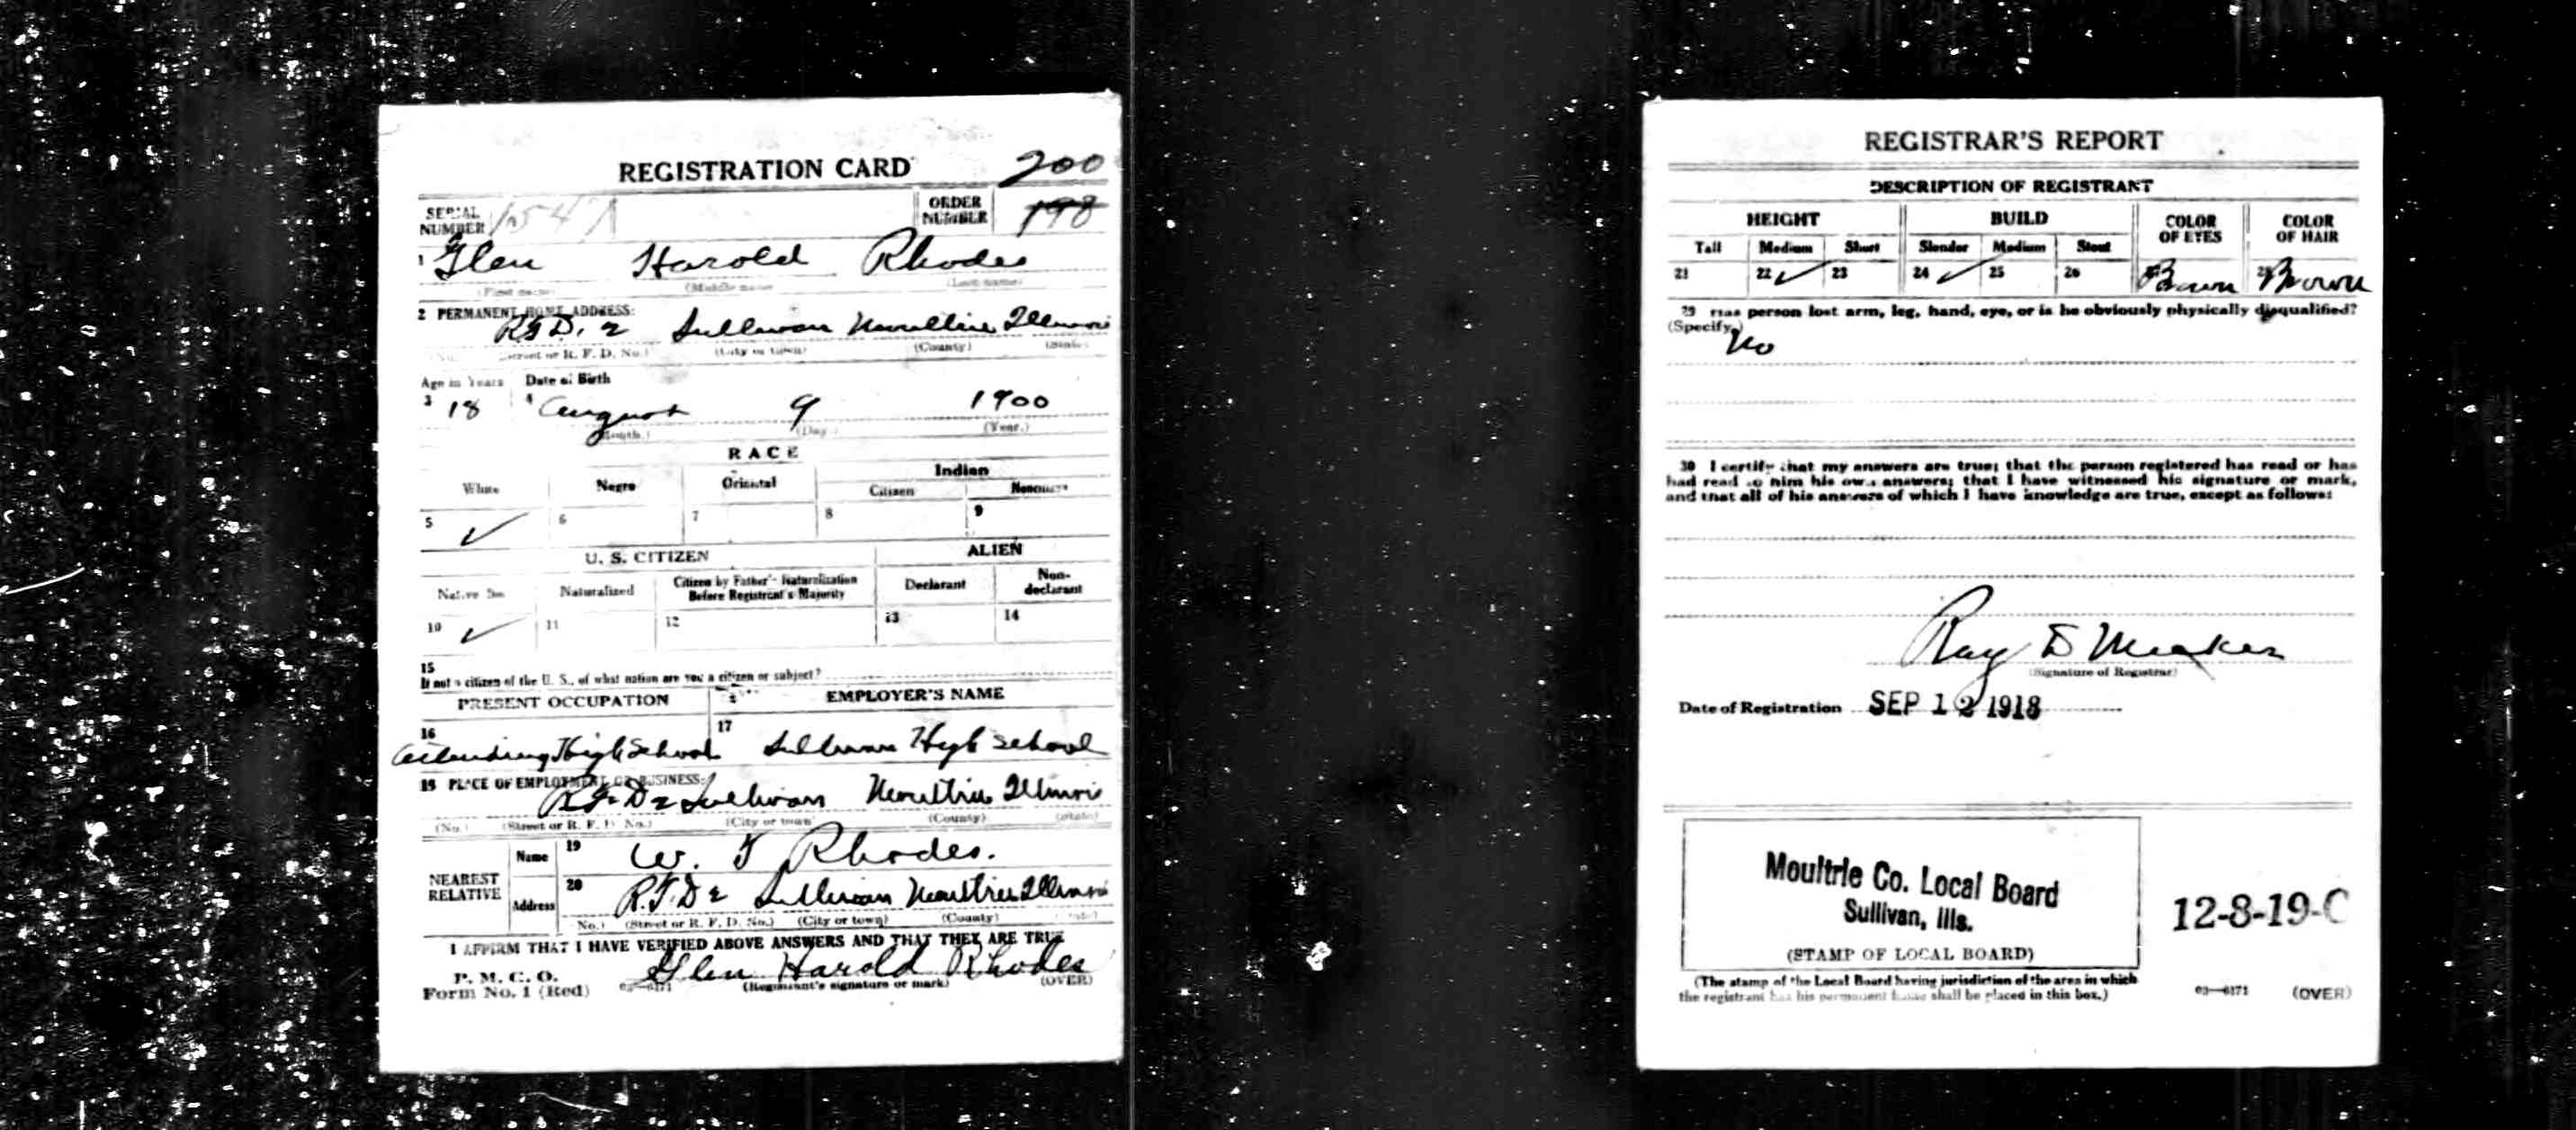 REGISTRATION CARD 200
SERIAL NUMBER ORDER NUMBER 198
1 Glen Harold Rhodes
(First name) (Middle name) (Last name)
2 PERMANENT HOME ADDRESS:
R.F.D. 2 Sullivan Moultrie Illinois
(No.) (Street or R. F. D. No.) (City or town) (County) (State)
Age in Years Date of Birth
3 18 4 August 9 1900
(Month.) (Day.) (Year.)
RACE
White Negro Oriental Indian
Citizen Noncitizen
5 ✓ 6 7 8 9
U. S. CITIZEN ALIEN
Native Born Naturalized Citizen by Father's Naturalization Before Registrant's Majority Declarant Non-declarant
10 ✓ 11 12 13 14
15
If not a citizen of the U. S., of what nation are you a citizen or subject?
PRESENT OCCUPATION EMPLOYER'S NAME
16 Attending High School 17 Sullivan High School
18 PLACE OF EMPLOYMENT OR BUSINESS:
R.F.D 2 Sullivan Moultrie Illinois
(No.) (Street or R. F. D. No.) (City or town) (County) (State)
NEAREST RELATIVE
Name 19 W. T Rhodes.
Address 20 R.F.D 2 Sullivan Moultrie Illinois
(No.) (Street or R. F. D. No.) (City or town) (County) (State)
I AFFIRM THAT I HAVE VERIFIED ABOVE ANSWERS AND THAT THEY ARE TRUE
P. M. G. O.
Form No. 1 (Red) 03—6171 Glen Harold Rhodes
(Registrant's signature or mark) (OVER)
REGISTRAR'S REPORT
DESCRIPTION OF REGISTRANT
HEIGHT BUILD COLOR OF EYES COLOR OF HAIR
Tall Medium Short Slender Medium Stout
21 22 ✓ 23 24 ✓ 25 26 27 Brown 28 Brown
29 Has person lost arm, leg, hand, eye, or is he obviously physically disqualified?
(Specify.)
No
30 I certify that my answers are true; that the person registered has read or has
had read to him his own answers; that I have witnessed his signature or mark,
and that all of his answers of which I have knowledge are true, except as follows:
Ray D Meeker
(Signature of Registrar)
Date of Registration SEP 12 1918
Moultrie Co. Local Board
Sullivan, Ills.
(STAMP OF LOCAL BOARD)
12-8-19-C
(The stamp of the Local Board having jurisdiction of the area in which
the registrant has his permanent home shall be placed in this box.)
03—6171 (OVER)